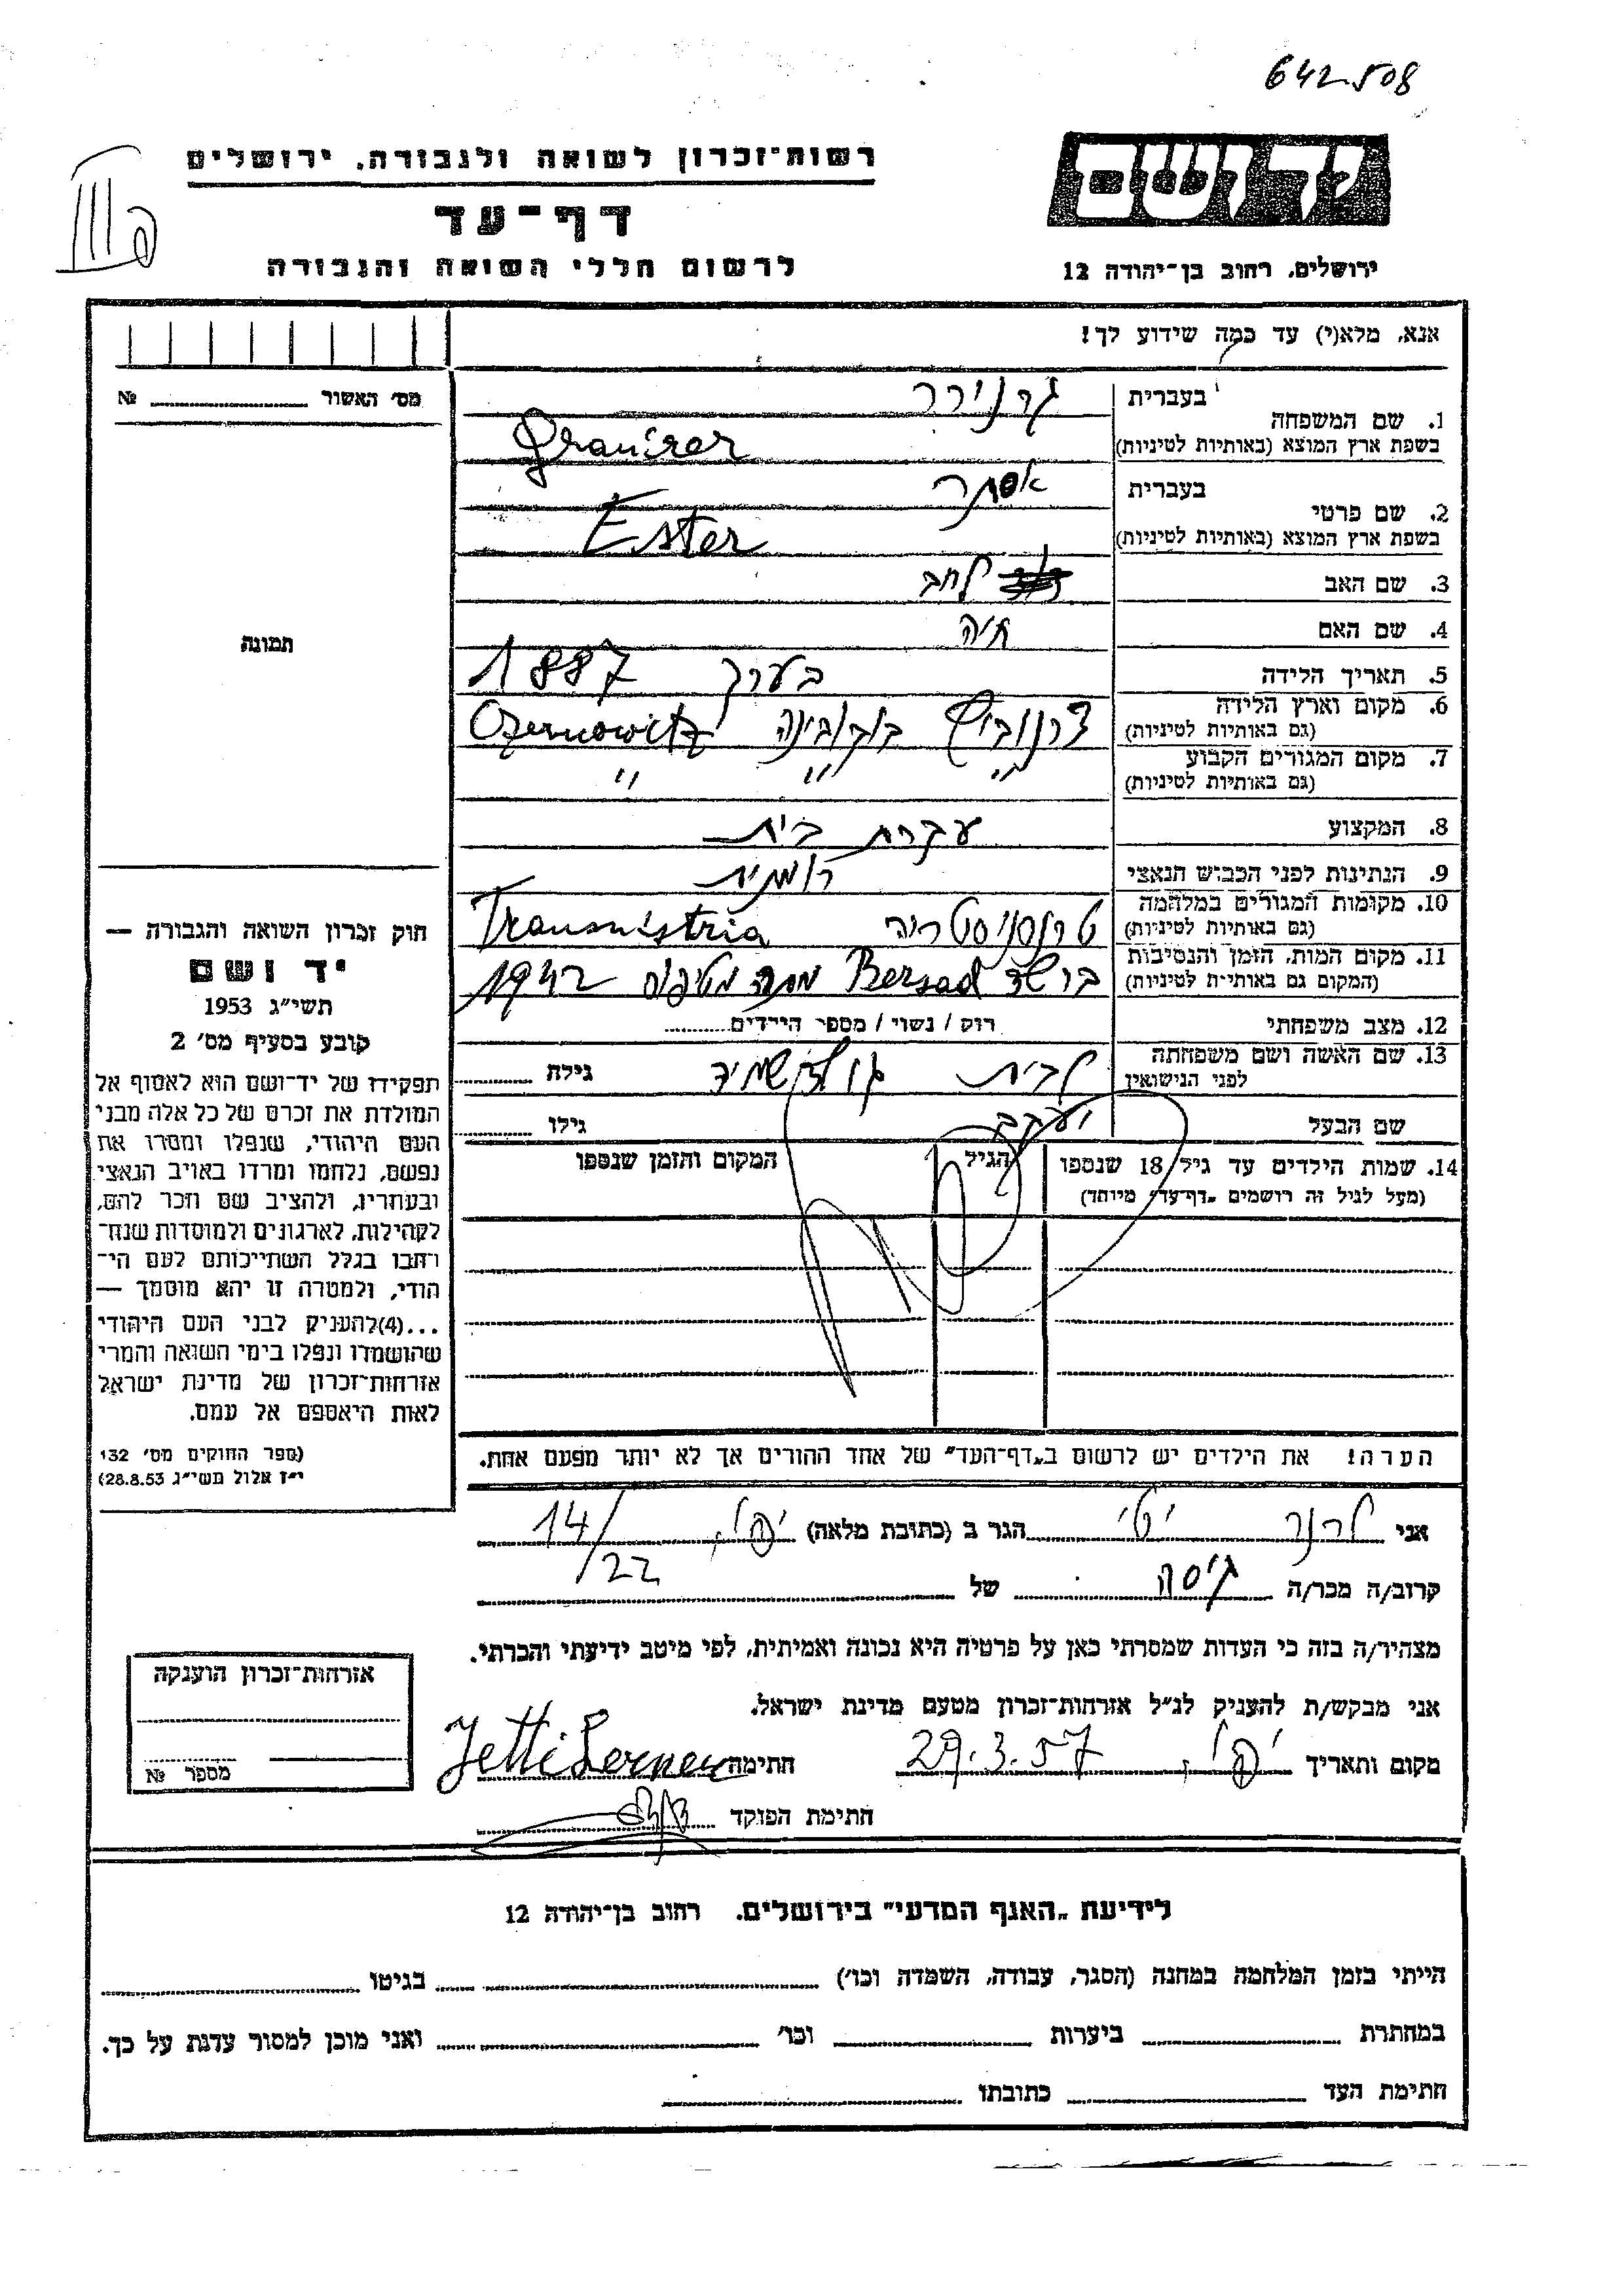 642508
רשות־זכרון לשואה ולגבורה, ירושלים
דף־עד
לרשום חללי השואה והגבורה
יד ושם
ירושלים, רחוב בן־יהודה 12
אנא, מלא(י) עד כמה שידוע לך!
מס׳ האשור № 
תמונה
בעברית גרנירר
1. שם המשפחה
בשפת ארץ המוצא (באותיות לטיניות) Granirer
בעברית אסתר
2. שם פרטי
בשפת ארץ המוצא (באותיות לטיניות) Ester
3. שם האב
4. שם האם חיה
5. תאריך הלידה בערך 1887
6. מקום וארץ הלידה
(גם באותיות לטיניות) צרנוביץ בוקובינה Czernowitz
7. מקום המגורים הקבוע
(גם באותיות לטיניות) " " "
8. המקצוע עקרת בית
9. הנתינות לפני הכבוש הנאצי רומנית
10. מקומות המגורים במלחמה
(גם באותיות לטיניות) טרנסניסטריה Transnistria
11. מקום המות, הזמן והנסיבות
(המקום גם באותיות לטיניות) ברשד Bersad מתה מטיפוס 1942
12. מצב משפחתי רווק / נשוי / מספר הילדים
13. שם האשה ושם משפחתה
לפני הנישואין לבית גולדשמיד גילה
שם הבעל יעקב גילו
14. שמות הילדים עד גיל 18 שנספו הגיל המקום והזמן שנספו
(מעל לגיל זה רושמים "דף־עד" מיוחד)
הערה! את הילדים יש לרשום ב"דף־העד" של אחד ההורים אך לא יותר מפעם אחת.
חוק זכרון השואה והגבורה —
יד ושם
תשי״ג 1953
קובע בסעיף מס׳ 2
תפקידו של יד־ושם הוא לאסוף אל
המולדת את זכרם של כל אלה מבני
העם היהודי, שנפלו ומסרו את
נפשם, נלחמו ומרדו באויב הנאצי
ובעוזריו, ולהציב שם וזכר להם,
לקהילות, לארגונים ולמוסדות שנח־
רבו בגלל השתייכותם לעם הי־
הודי, ולמטרה זו יהא מוסמך —
...(4)להעניק לבני העם היהודי
שהושמדו ונפלו בימי השואה והמרי
אזרחות־זכרון של מדינת ישראל
לאות היאספם אל עמם.
(ספר החוקים מס׳ 132
י״ז אלול תשי״ג 28.8.53)
אני לרנר יטי הגר ב (כתובת מלאה) 14/22
קרוב/ה מכר/ה גיסה של
מצהיר/ה בזה כי העדות שמסרתי כאן על פרטיה היא נכונה ואמיתית, לפי מיטב ידיעתי והכרתי.
אני מבקש/ת להעניק לנ״ל אזרחות־זכרון מטעם מדינת ישראל.
מקום ותאריך 29.3.57 חתימה Jetti Lerner
חתימת הפוקד
אזרחות־זכרון הוענקה
מספר №
לידיעת "האגף המדעי" בירושלים. רחוב בן־יהודה 12
הייתי בזמן המלחמה במחנה (הסגר, עבודה, השמדה וכו׳) בגיטו
במחתרת ביערות וכו׳ ואני מוכן למסור עדות על כך.
חתימת העד כתובתו